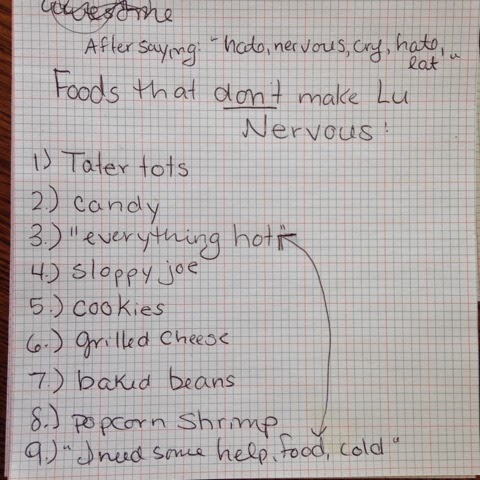 awesome
After saying: "hato, nervous, cry, hato,
eat"
Foods that don't make Lu
Nervous:
1) Tater tots
2.) candy
3.) "everything hot"
4.) sloppy joe
5.) cookies
6.) grilled cheese
7.) baked beans
8.) popcorn shrimp
9.) "I need some help, food, cold"